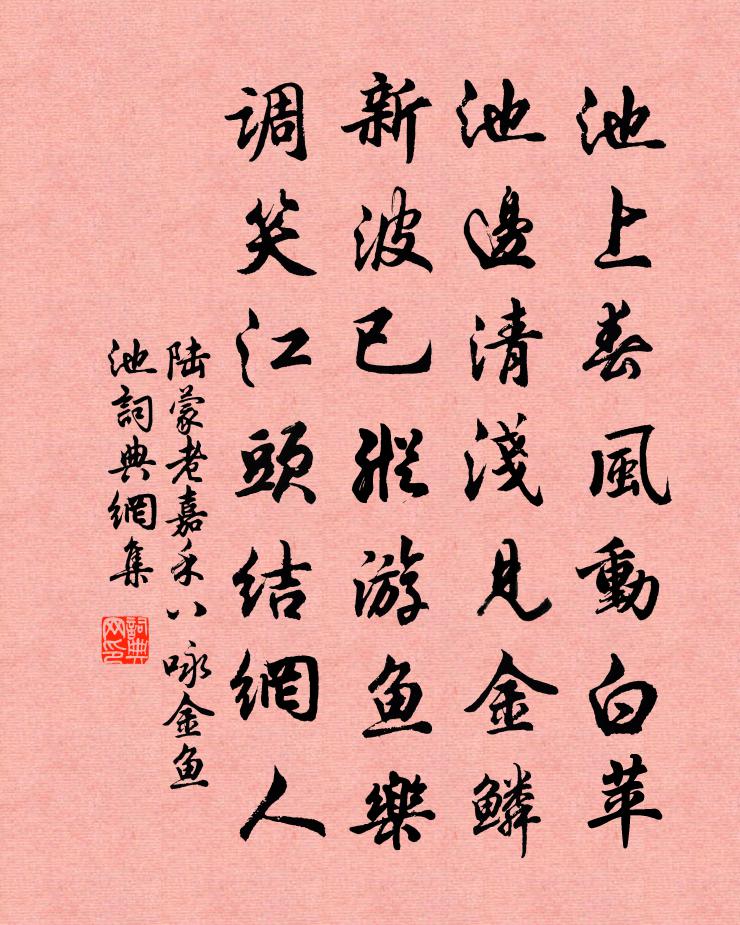 池上春風動白苹
池邊清淺見金鱗
新波已縱游鱼樂
调笑江頭結網人
陆蒙老嘉禾八咏金鱼
池詞典網集
詞典网印